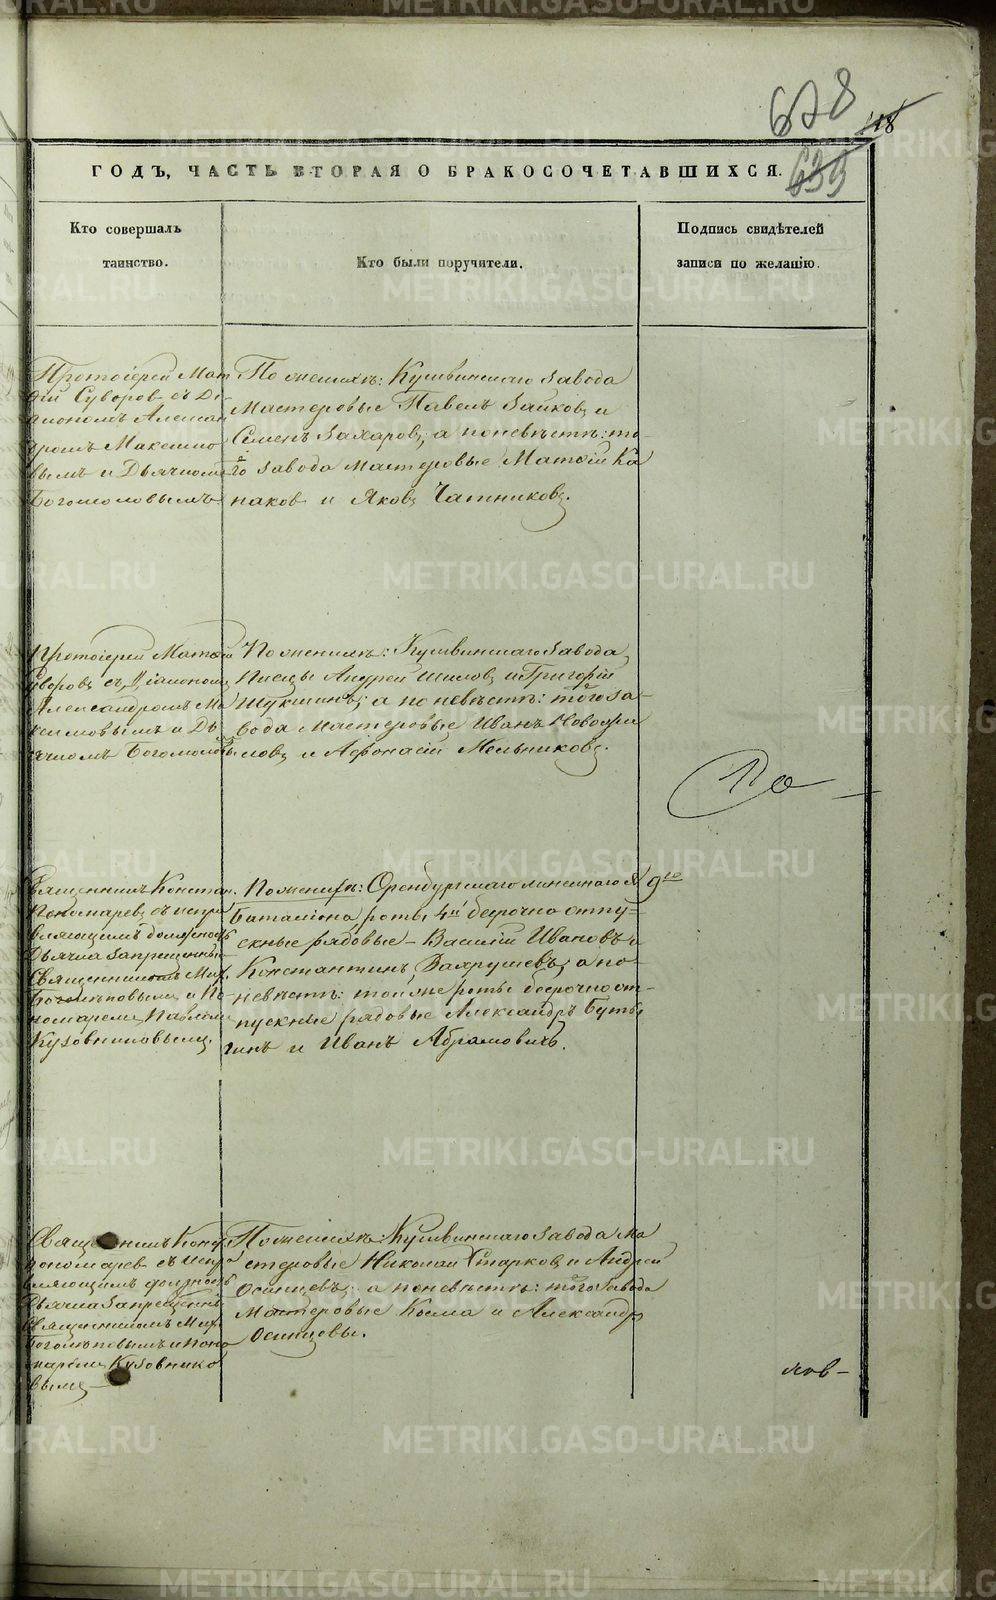 678
118
639
ГОДЪ, ЧАСТЬ ВТОРАЯ О БРАКОСОЧЕТАВШИХСЯ.
Кто совершалъ
таинство.
Кто были поручители.
Подпись свидѣтелей
записи по желанію.
Протоіерей Мат
ѳій Суворов съ Ді
акономъ Алексан
дромъ Максимо
вымъ и Дьячкомъ
Богомоловымъ
По женихѣ: Кушвинскаго завода
Мастеровые Павелъ Зайковъ и
Семенъ Захаровъ; а по невѣстѣ: то-
го завода мастеровые Матѳій Ка
наков и Яковъ Чатниковъ.
Протоіерей Матѳій
Суворовъ съ Діакономъ
Александромъ Ма
ксимовымъ и Дь
ячкомъ Богомоловы
По женихѣ: Кушвинскаго завода
Писцы Андрей Шиловъ и Григорій
Щукинъ; а по невѣстѣ: того за-
вода Мастеровые Иванъ Новосе
ловъ и Аѳонасій Мельниковъ.
По
Священникъ Конста
Пономаревъ съ испра
вляющимъ должность
Дьячка запрещенны
Священникомъ Мих.
и По
номаремъ Павломъ
Кузовниковымъ.
По женихѣ: Оренбургскаго линейнаго № 9го
Баталіона роты 4й безсрочно отпу-
скные рядовые – Василій Ивановъ и
Константинъ Вахрушевъ; а по
невѣстѣ: той же роты безсрочно от-
пускные рядовые Александръ Буты
гинъ и Иванъ Абрамовичъ.
Священникъ Конс
Пономарев съ испра
вляющимъ должность
Дьячка запрещен
Священникомъ Мих.
и Поно
маремъ Кузовнико
вымъ
По женихѣ: Кушвинскаго завода Ма
стеровые Николай Старковъ и Андрей
Осинцевъ; а по невѣстѣ: того завода
Мастеровые Косма и Александръ
Осинцовы.
ков–
METRIKI.GASO-URAL.RU